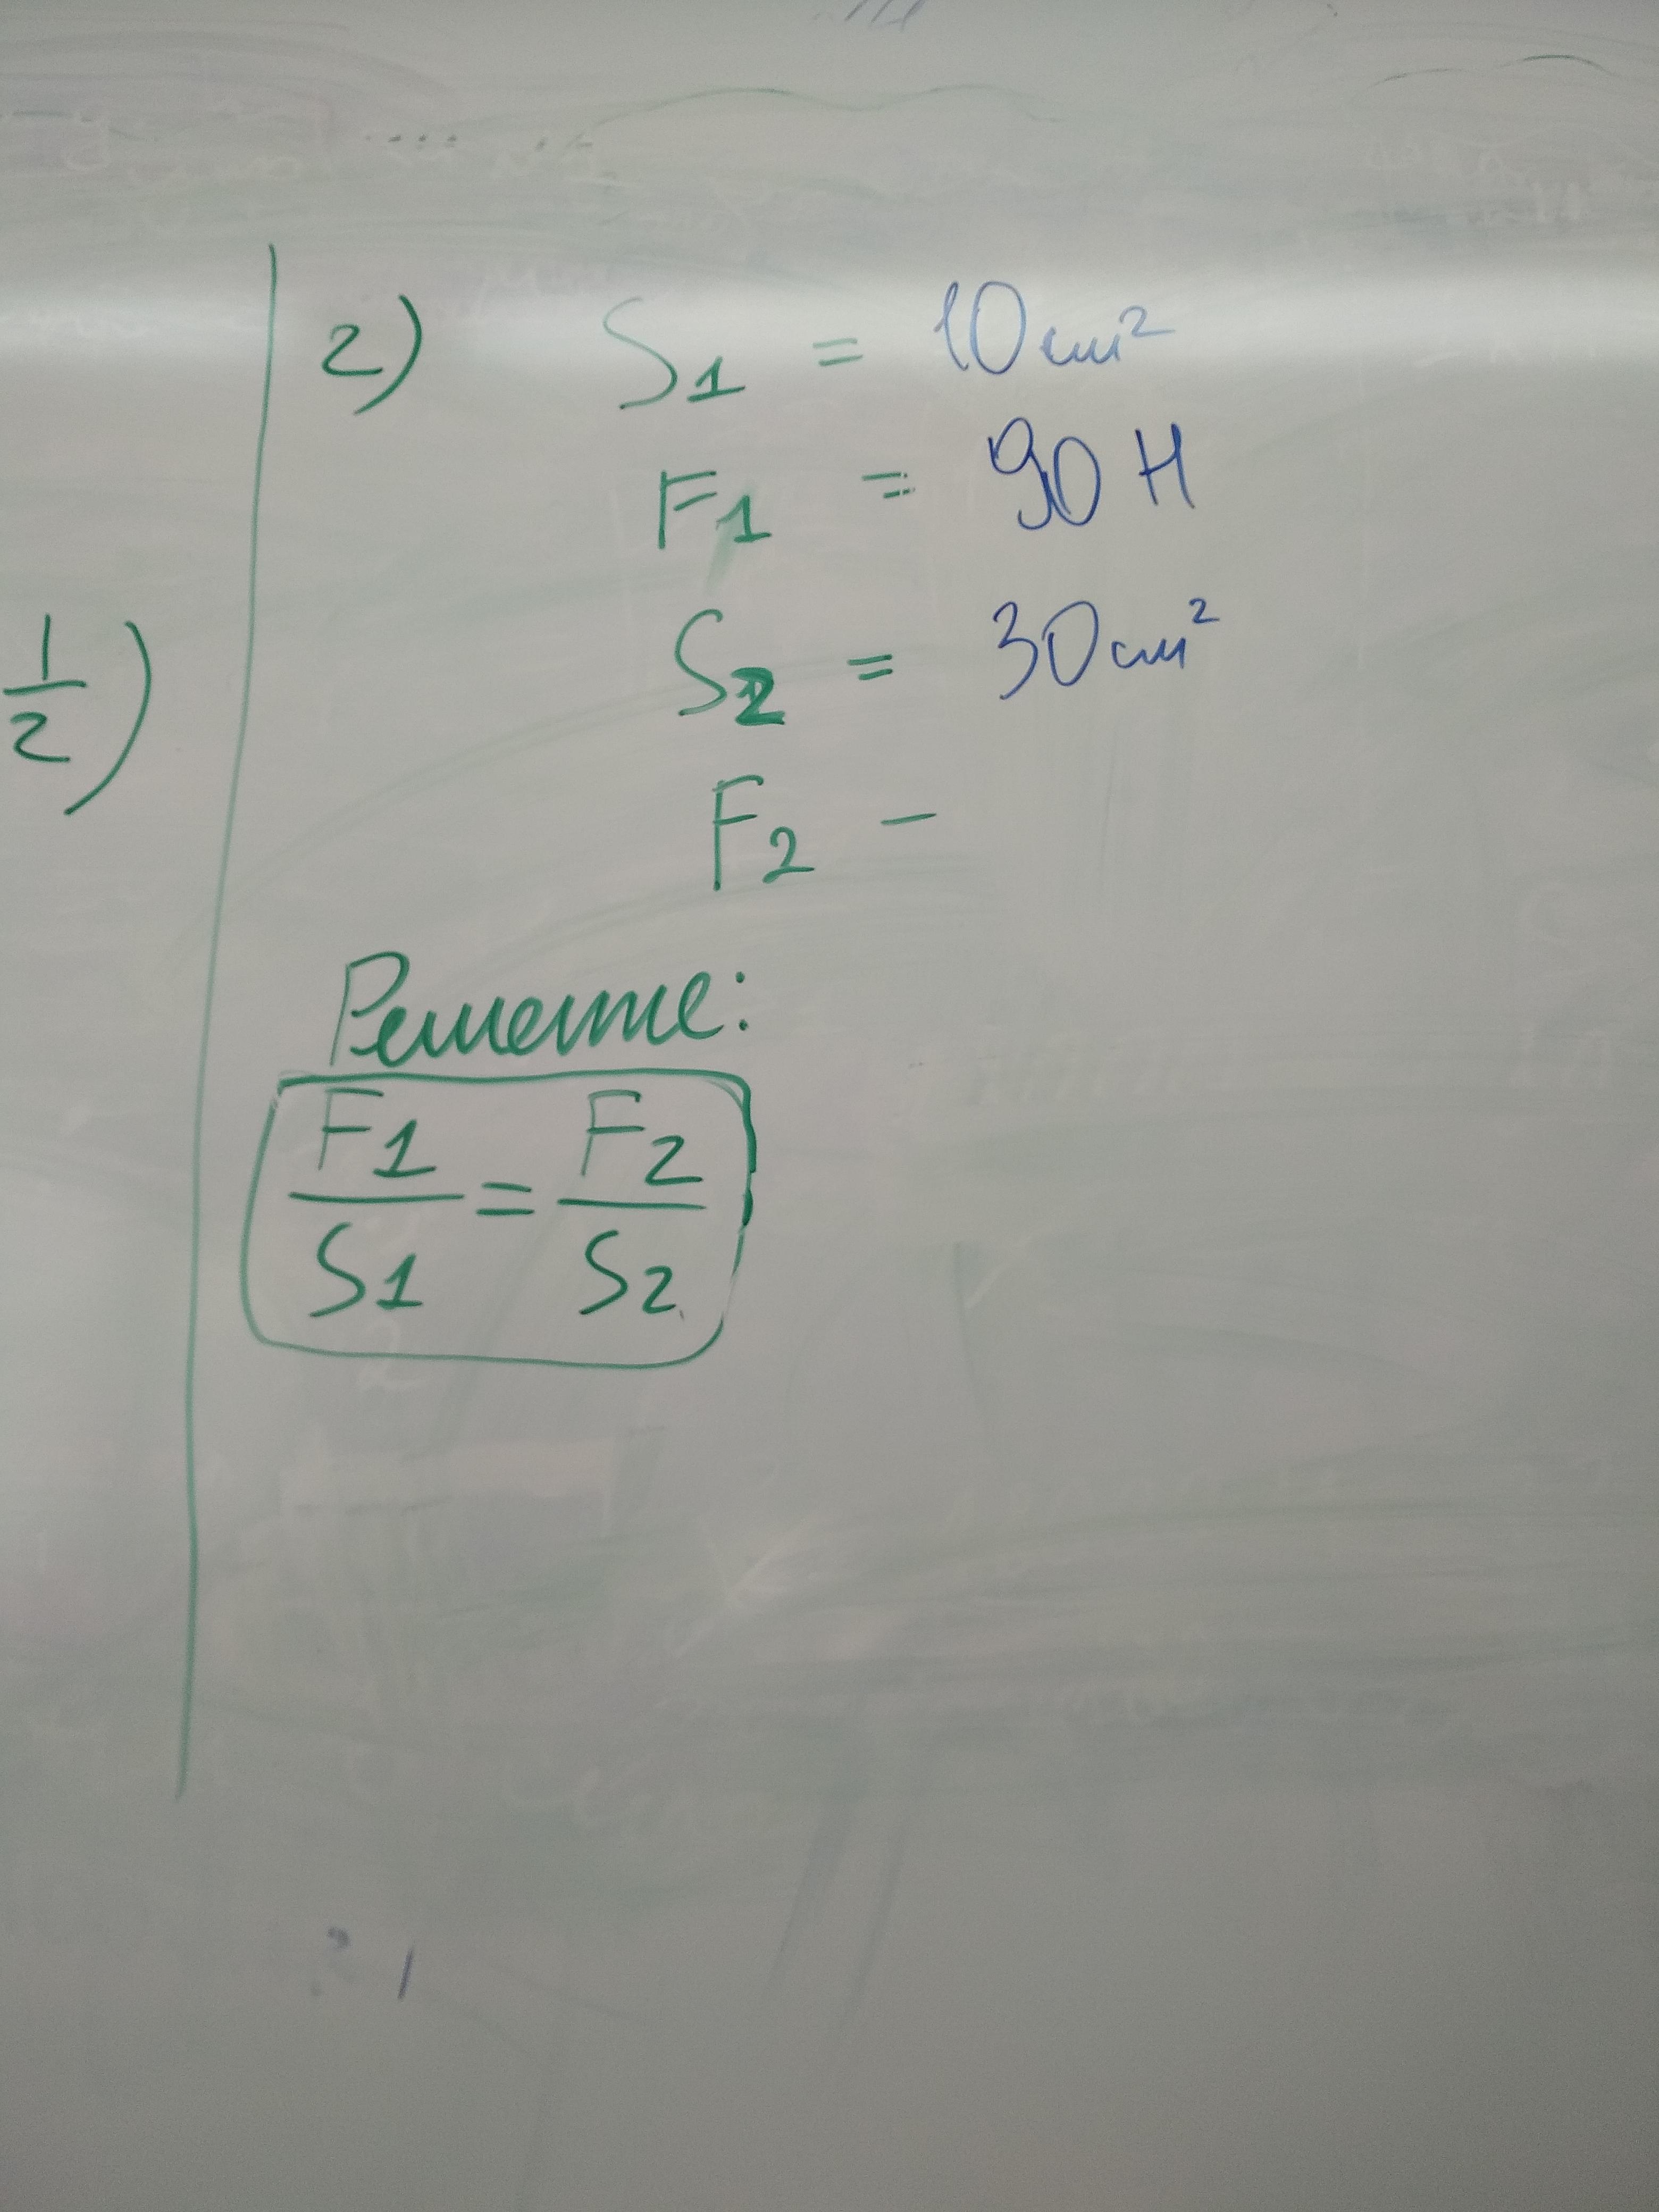 1/2)
2) S1 = 10 см²
F1 = 90 Н
S2 = 30 см²
F2 –
Решение:
F1/S1 = F2/S2